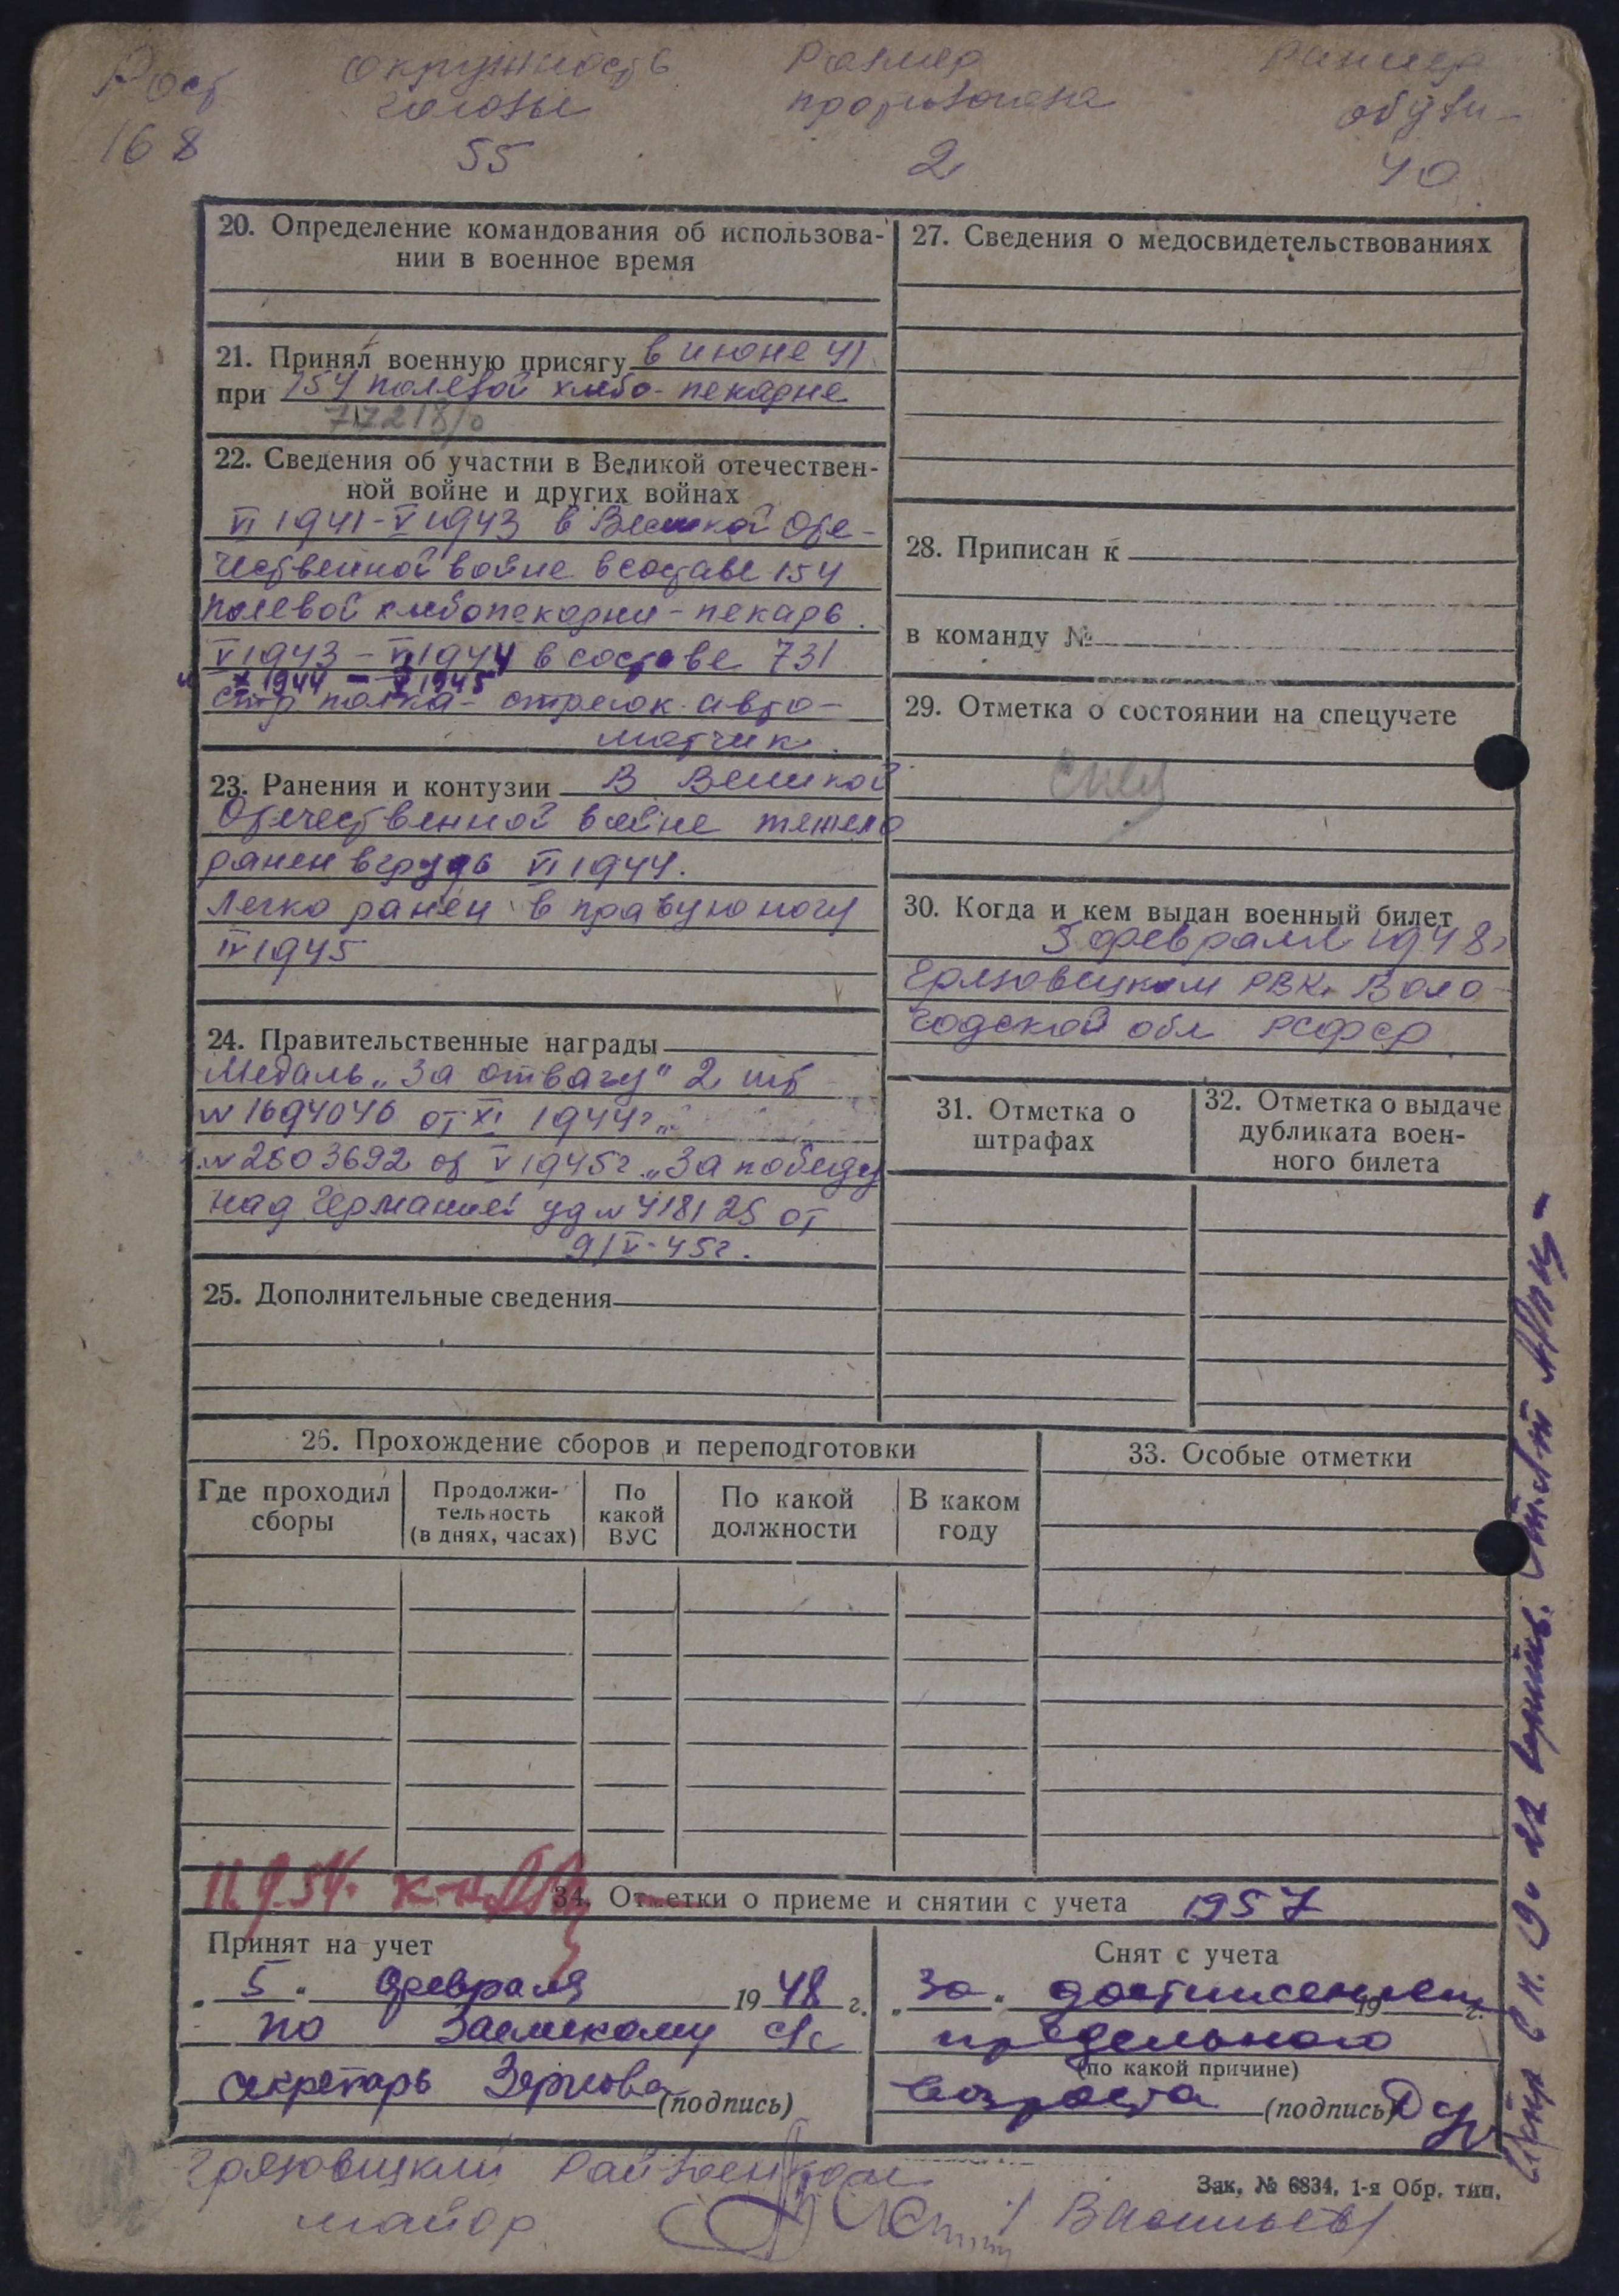 Рост
168
окружность
головы
55
Размер
противогаза
2
Размер
обуви -
40
20. Определение командования об использова-
нии в военное время
21. Принял военную присягу в июне 41
при 154 полевой хлебо-пекарне
22. Сведения об участии в Великой отечествен-
ной войне и других войнах
VI 1941 - V 1943 в Великой Оте-
чественной войне в составе 154
полевой хлебопекарни - пекарь.
V 1943 - VI 1944 в составе 731
и X 1944 - V 1945
стр полка - стрелок авто-
матчик.
23. Ранения и контузии В Великой
Отечественной войне тяжело
ранен в грудь VI 1944.
Легко ранен в правую ногу
IV 1945
24. Правительственные награды
Медаль „За отвагу" 2 шт
№ 1694046 от XI 1944г.
№ 2503692 от V 1945г. „За победу
над Германией уд № 418125 от
9/V-45г.
25. Дополнительные сведения
27. Сведения о медосвидетельствованиях
28. Приписан к
в команду №
29. Отметка о состоянии на спецучете
30. Когда и кем выдан военный билет
5 февраля 1948г
Грязовецким РВК, Воло-
годской обл РСФСР.
31. Отметка о
штрафах
32. Отметка о выдаче
дубликата воен-
ного билета
26. Прохождение сборов и переподготовки
Где проходил
сборы
Продолжи-
тельность
(в днях, часах)
По
какой
ВУС
По какой
должности
В каком
году
33. Особые отметки
11.9.54.
34. Отметки о приеме и снятии с учета 1957
Принят на учет
„5" февраля 1948 г.
по Заемскому с/с
секретарь Зернова (подпись)
Снят с учета
„За" достижением 19 г.
предельного
(по какой причине)
возраста (подпись)
Грязовецкий Райвоенком
майор
Васильев
Зак. № 6834. 1-я Обр. тип.